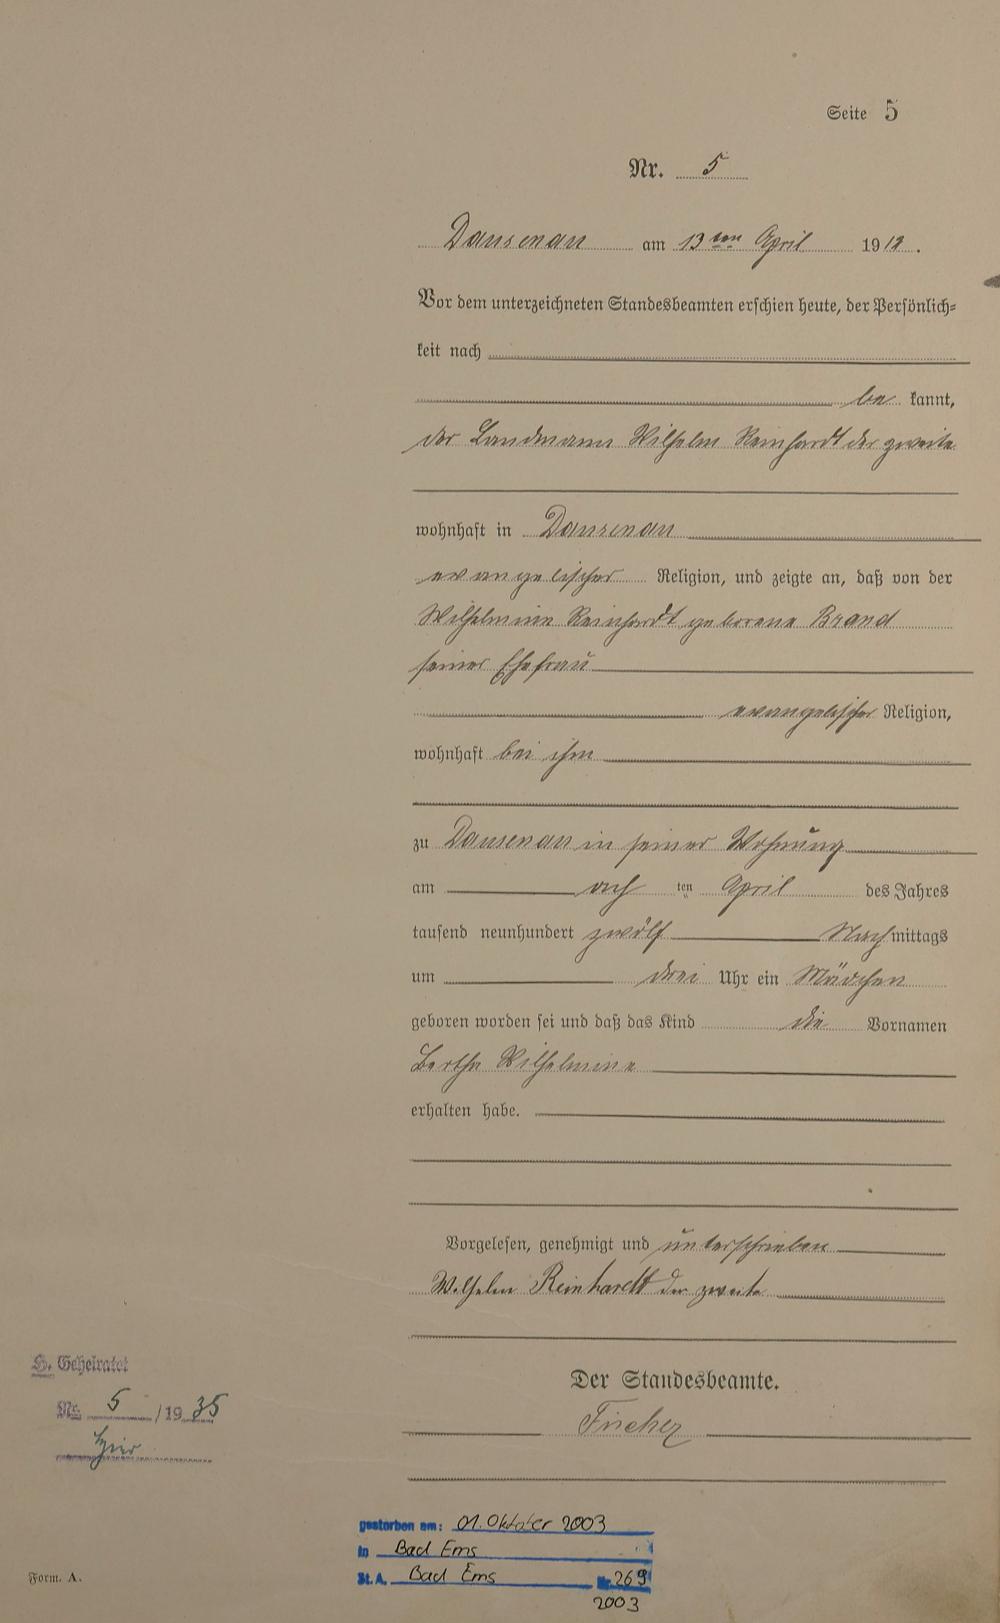 Seite 5
Nr. 5
Dausenau am 13ten April 1912.
Vor dem unterzeichneten Standesbeamten erschien heute, der Persönlich=
keit nach
be kannt,
der Landmann Wilhelm Reinhardt der zweite
wohnhaft in Dausenau
evangelischer Religion, und zeigte an, daß von der
Wilhelmine Reinhardt geborene Brand
seiner Ehefrau
evangelischer Religion,
wohnhaft bei ihm
zu Dausenau in seiner Wohnung
am ach ten April des Jahres
tausend neunhundert zwölf Nach mittags
um drei Uhr ein Mädchen
geboren worden sei und daß das Kind die Vornamen
Bertha Wilhelmine
erhalten habe.
Vorgelesen, genehmigt und unterschrieben
Wilhelm Reinhardt der zweite
Der Standesbeamte.
Fischer
H. Geheiratet
Nr. 5 /19 35
hier
gestorben am: 01. Oktober 2003
in Bad Ems
St. A. Bad Ems Nr. 269
2003
Form. A.